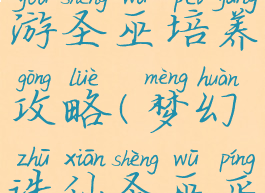 yóu shèng wū péi yǎng
游圣巫培养
gōng lüè mèng huàn
攻略(梦幻
zhū xiān shèng wū píng
诛仙圣巫评